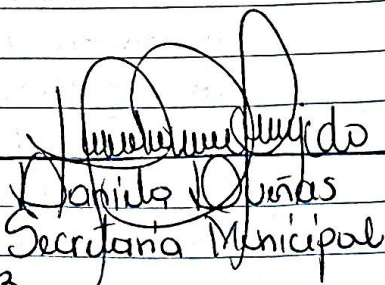 Daniela Dueñas
Secretaria Municipal